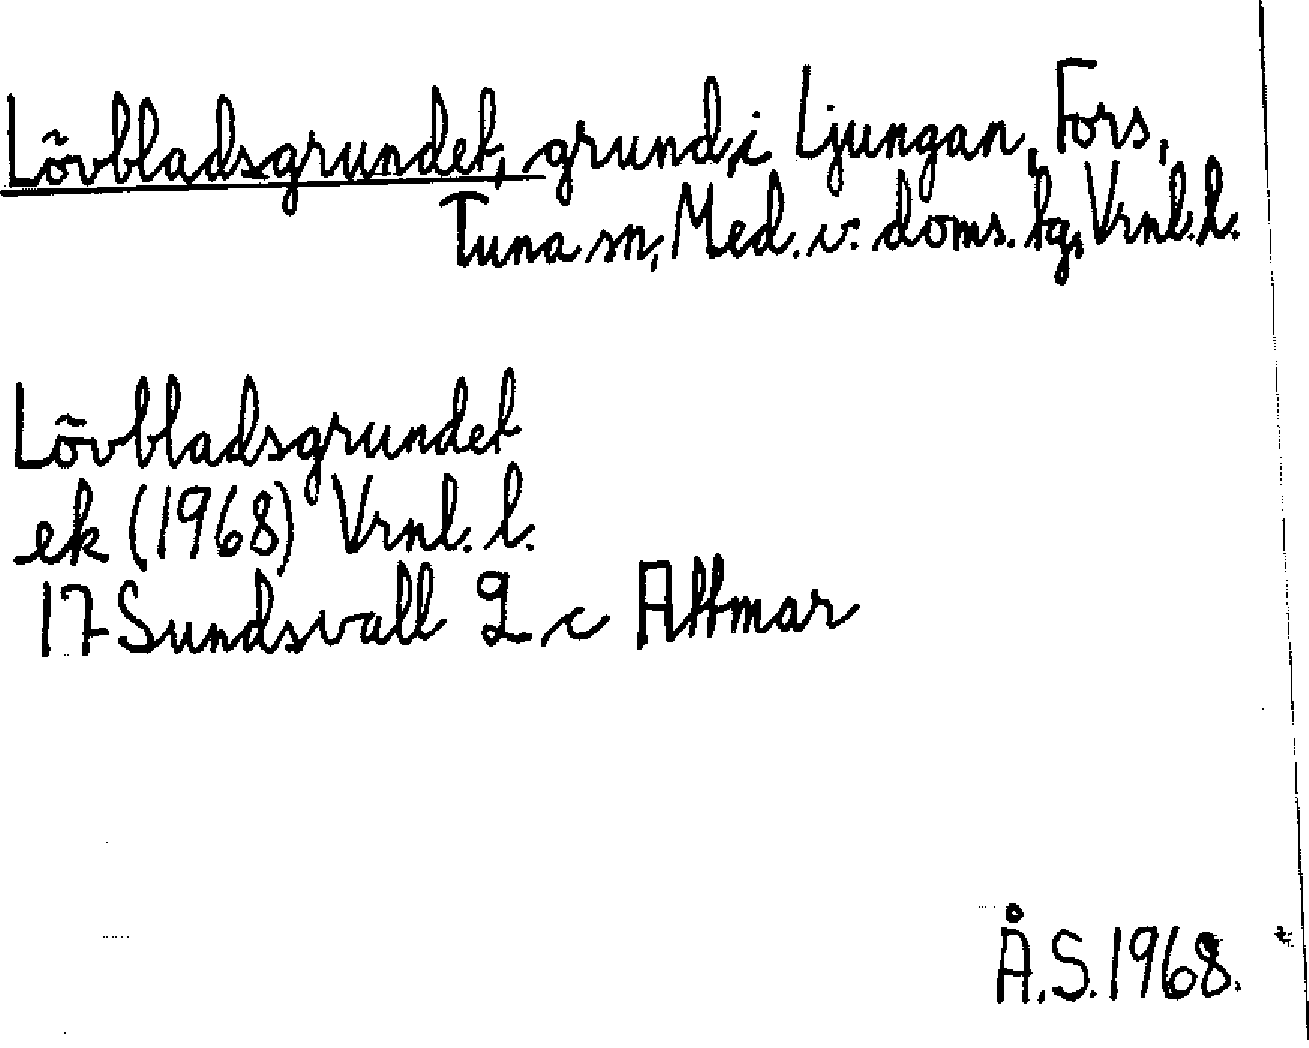 Lövbladsgrundet, grund i Ljungan, Fors,
Tuna sn, Med. v. doms. tg, Vrnl. l.
Lövbladsgrundet
ek (1968) Vrnl. l.
17 Sundsvall 9 c Attmar
Å.S. 1968.